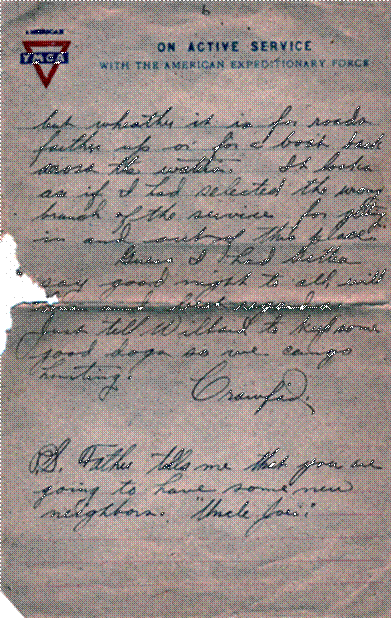 6
AMERICAN
YMCA
ON ACTIVE SERVICE
WITH THE AMERICAN EXPEDITIONARY FORCE
but wheather it is for roads
farther up or for a boat back
across the water. It looks
as if I had selected the wrong
branch of the service for
in and out of this place.
Guess I had better
say good night to all, with
love and best regards
Just tell Willard to keep some
good dogs so we can go
hunting.
Crawford.
P.S. Father tells me that you are
going to have some new
neighbors. "Uncle Joe."